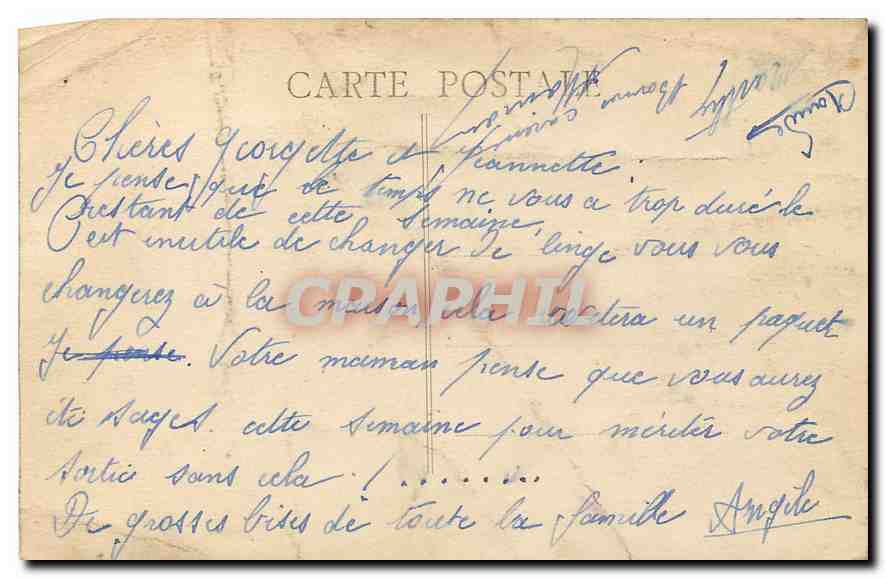 CARTE POSTALE
Chères Georgette et Jeannette.
Je pense que ce temps ne vous a trop duré le
restant de cette semaine
C'est inutile de changer de linge vous vous
changerez à la maison, cela évitera un paquet
Je pense. Votre maman pense que vous aurez
été sages cette semaine pour mériter votre
sortie sans cela ! ........
De grosses bises de toute la famille Angèle
CARTAPHIL